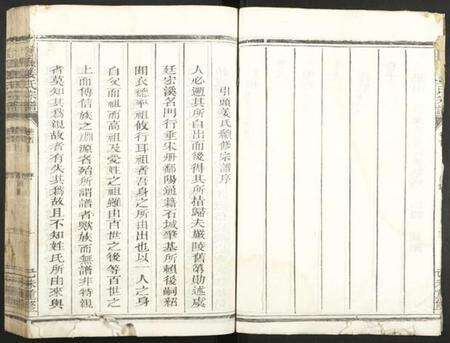 引頭姜氏續修宗譜序
人必遡其所自出而後得其所歸夫嚴陵舊第勛述虞
廷宏溪名門行垂宋册鄱陽通籍石城肇基所賴後嗣紹
聞衣德平祖攸行耳祖者吾身之所由出也以一人之身
自父而祖而高祖及受姓之祖雖由百世之後等百世之
上而傳信族之淵源者殆所謂譜者歟族而無譜非特親
者莫知其爲親故者有失其爲故且不知姓氏所由來與